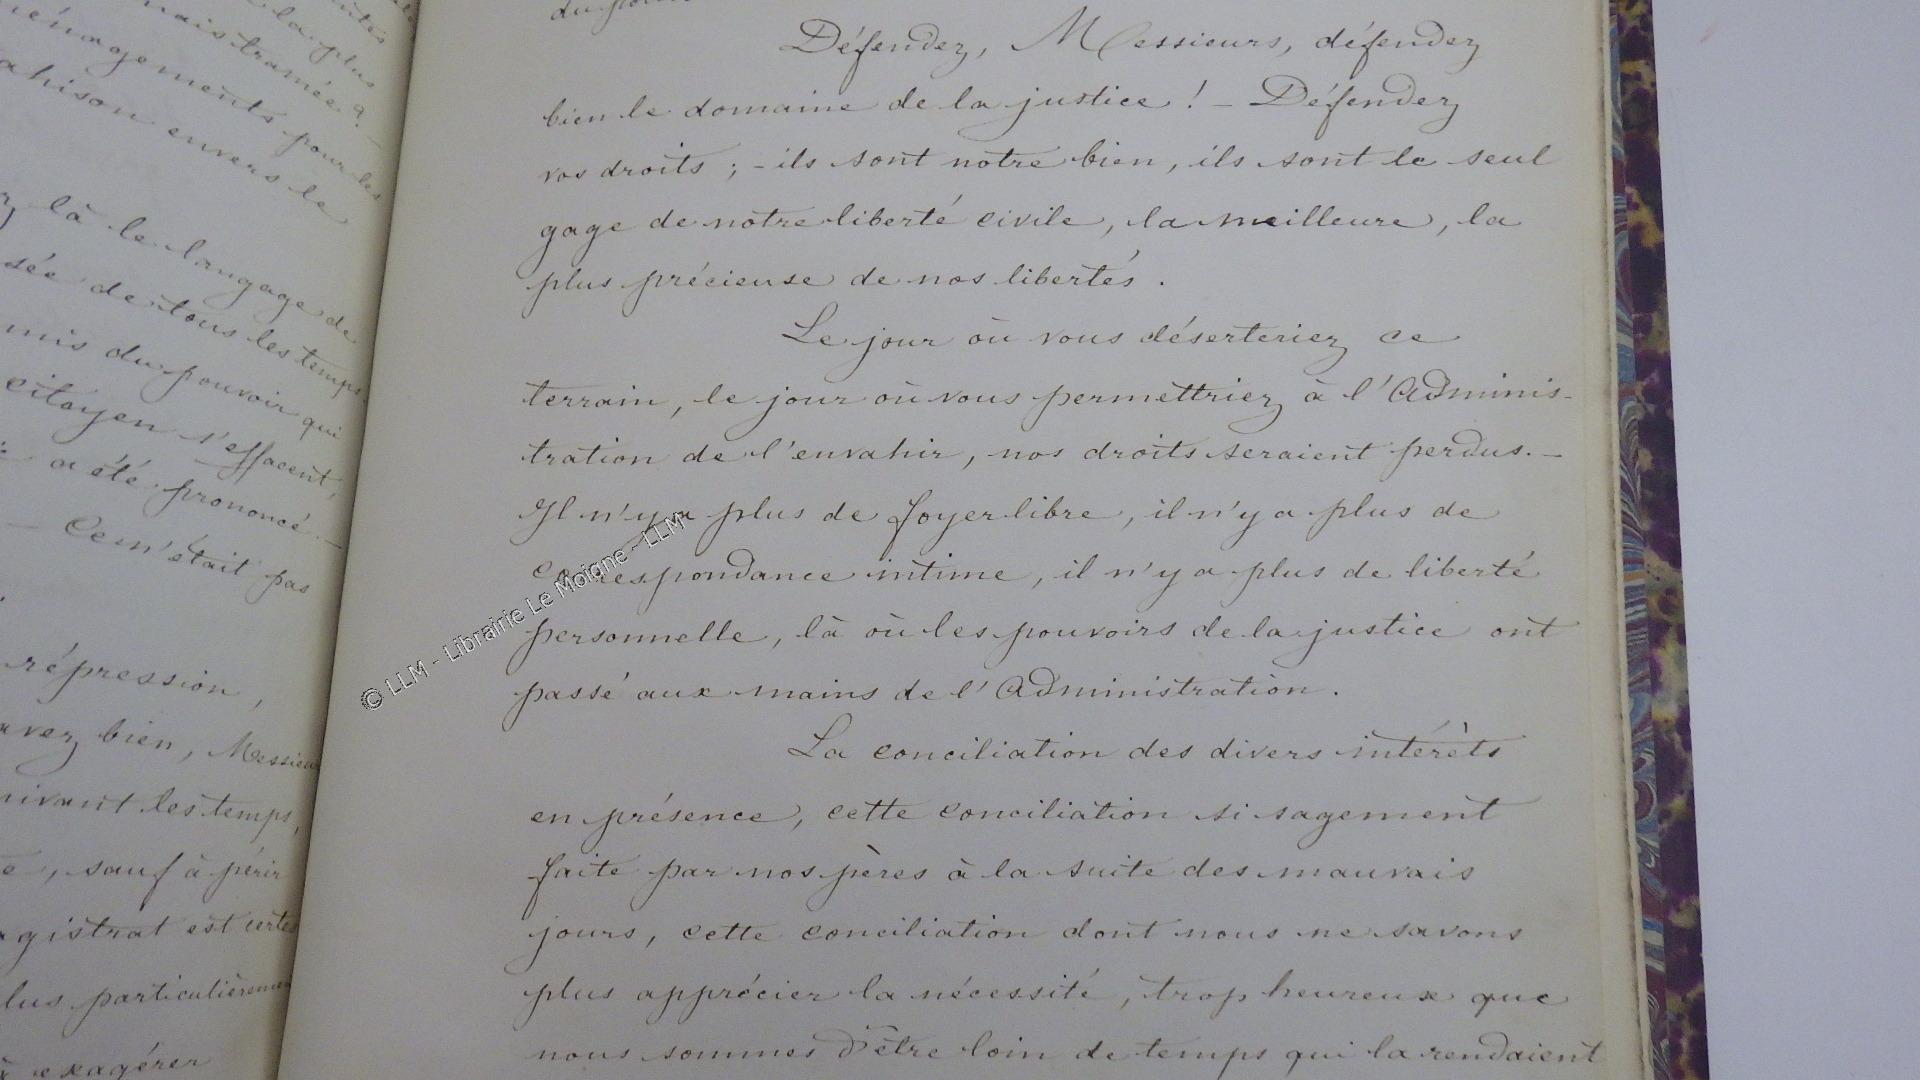 antés
de la plus
mais tramée ?
ménagements pour les
ahison envers le
là le langage de
sée de tous les temps.
mis du pouvoir qui
citoyen s'effacent,
a été prononcé. —
— Ce m'était pas
répression,
avez bien, Messieu
uivant les temps,
e, sauf à périr
agistrat est certes
lus particulièremen
à exagérer
Défendez, Messieurs, défendez
bien le domaine de la justice ! — Défendez
vos droits ; — ils sont notre bien, ils sont le seul
gage de notre liberté civile, la meilleure, la
plus précieuse de nos libertés.
Le jour où vous déserteriez ce
terrain, le jour où vous permettriez à l'Adminis-
tration de l'envahir, nos droits seraient perdus. —
Il n'y a plus de foyer libre, il n'y a plus de
correspondance intime, il n'y a plus de liberté
personnelle, là où les pouvoirs de la justice ont
passé aux mains de l'Administration.
La conciliation des divers intérêts
en présence, cette conciliation si sagement
faite par nos pères à la suite des mauvais
jours, cette conciliation dont nous ne savons
plus apprécier la nécessité, trop heureux que
nous sommes d'être loin de temps qui la rendaient
© LLM - Librairie Le Moigne - LLM